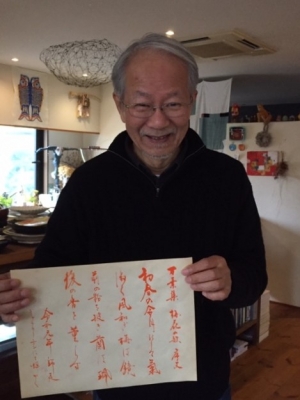 万葉集 梅花の歌 序文
初春の令月にして氣
淑く風和き梅は鏡
前の粉を披き蘭は珮
後の香を薫らす
令和元年 師走